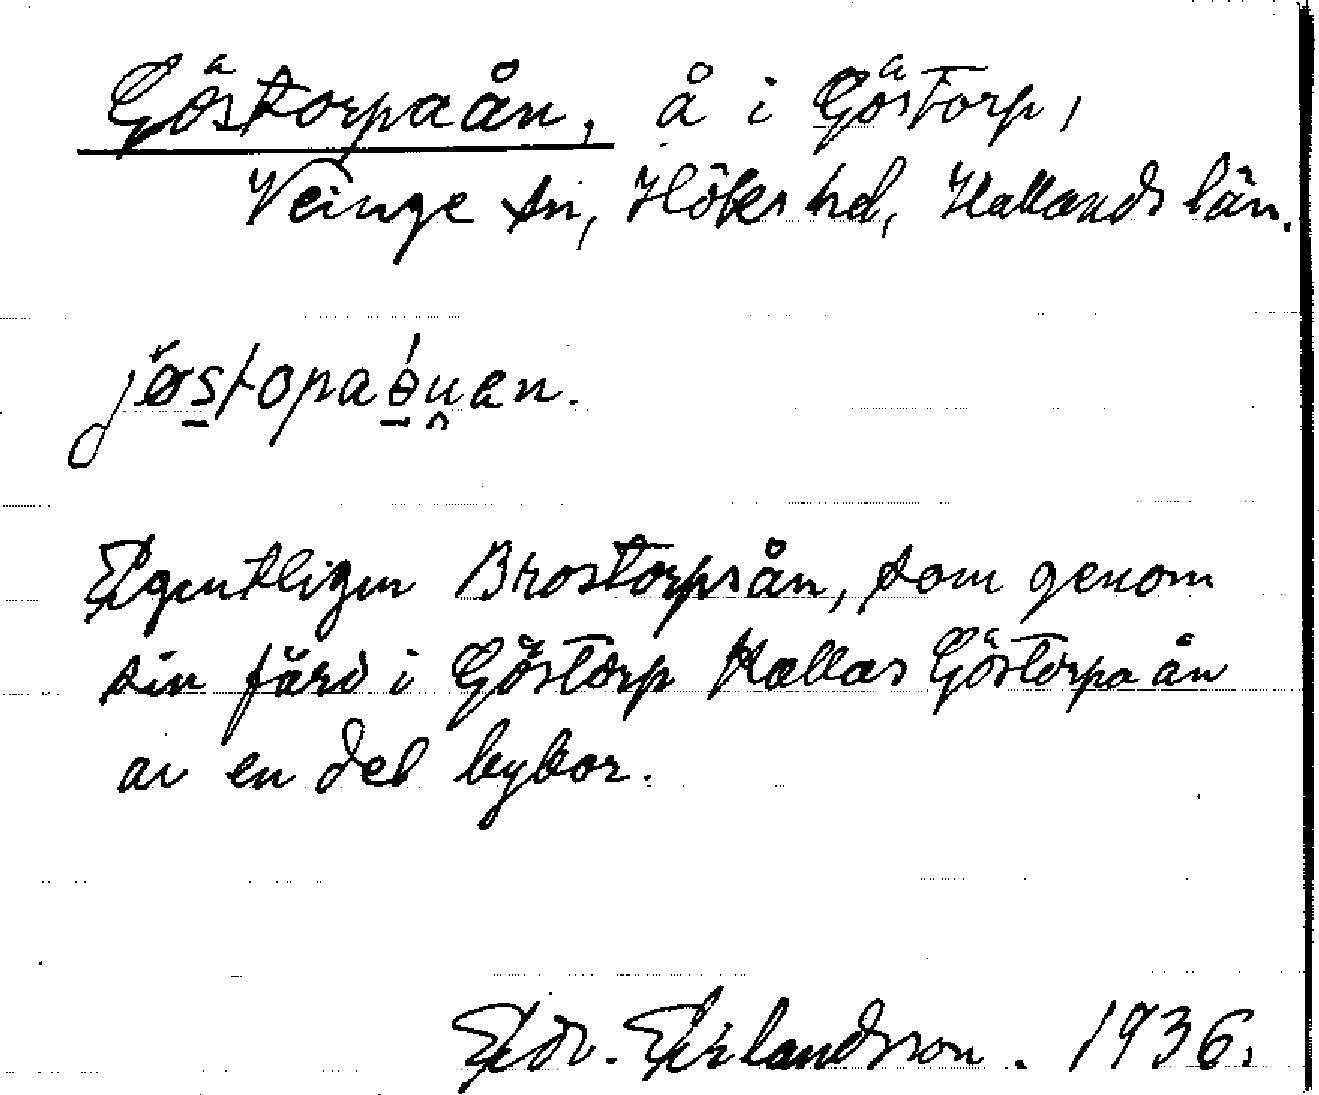 Göstorpaån, å i Göstorp,
Veinge sn, Höks hd, Hallands län.
jøstopaɵuan.
Egentligen Brostorpsån, som genom
sin färd i Göstorp kallas Göstorpaån
av en del bybor.
Edv. Erlandsson. 1936.